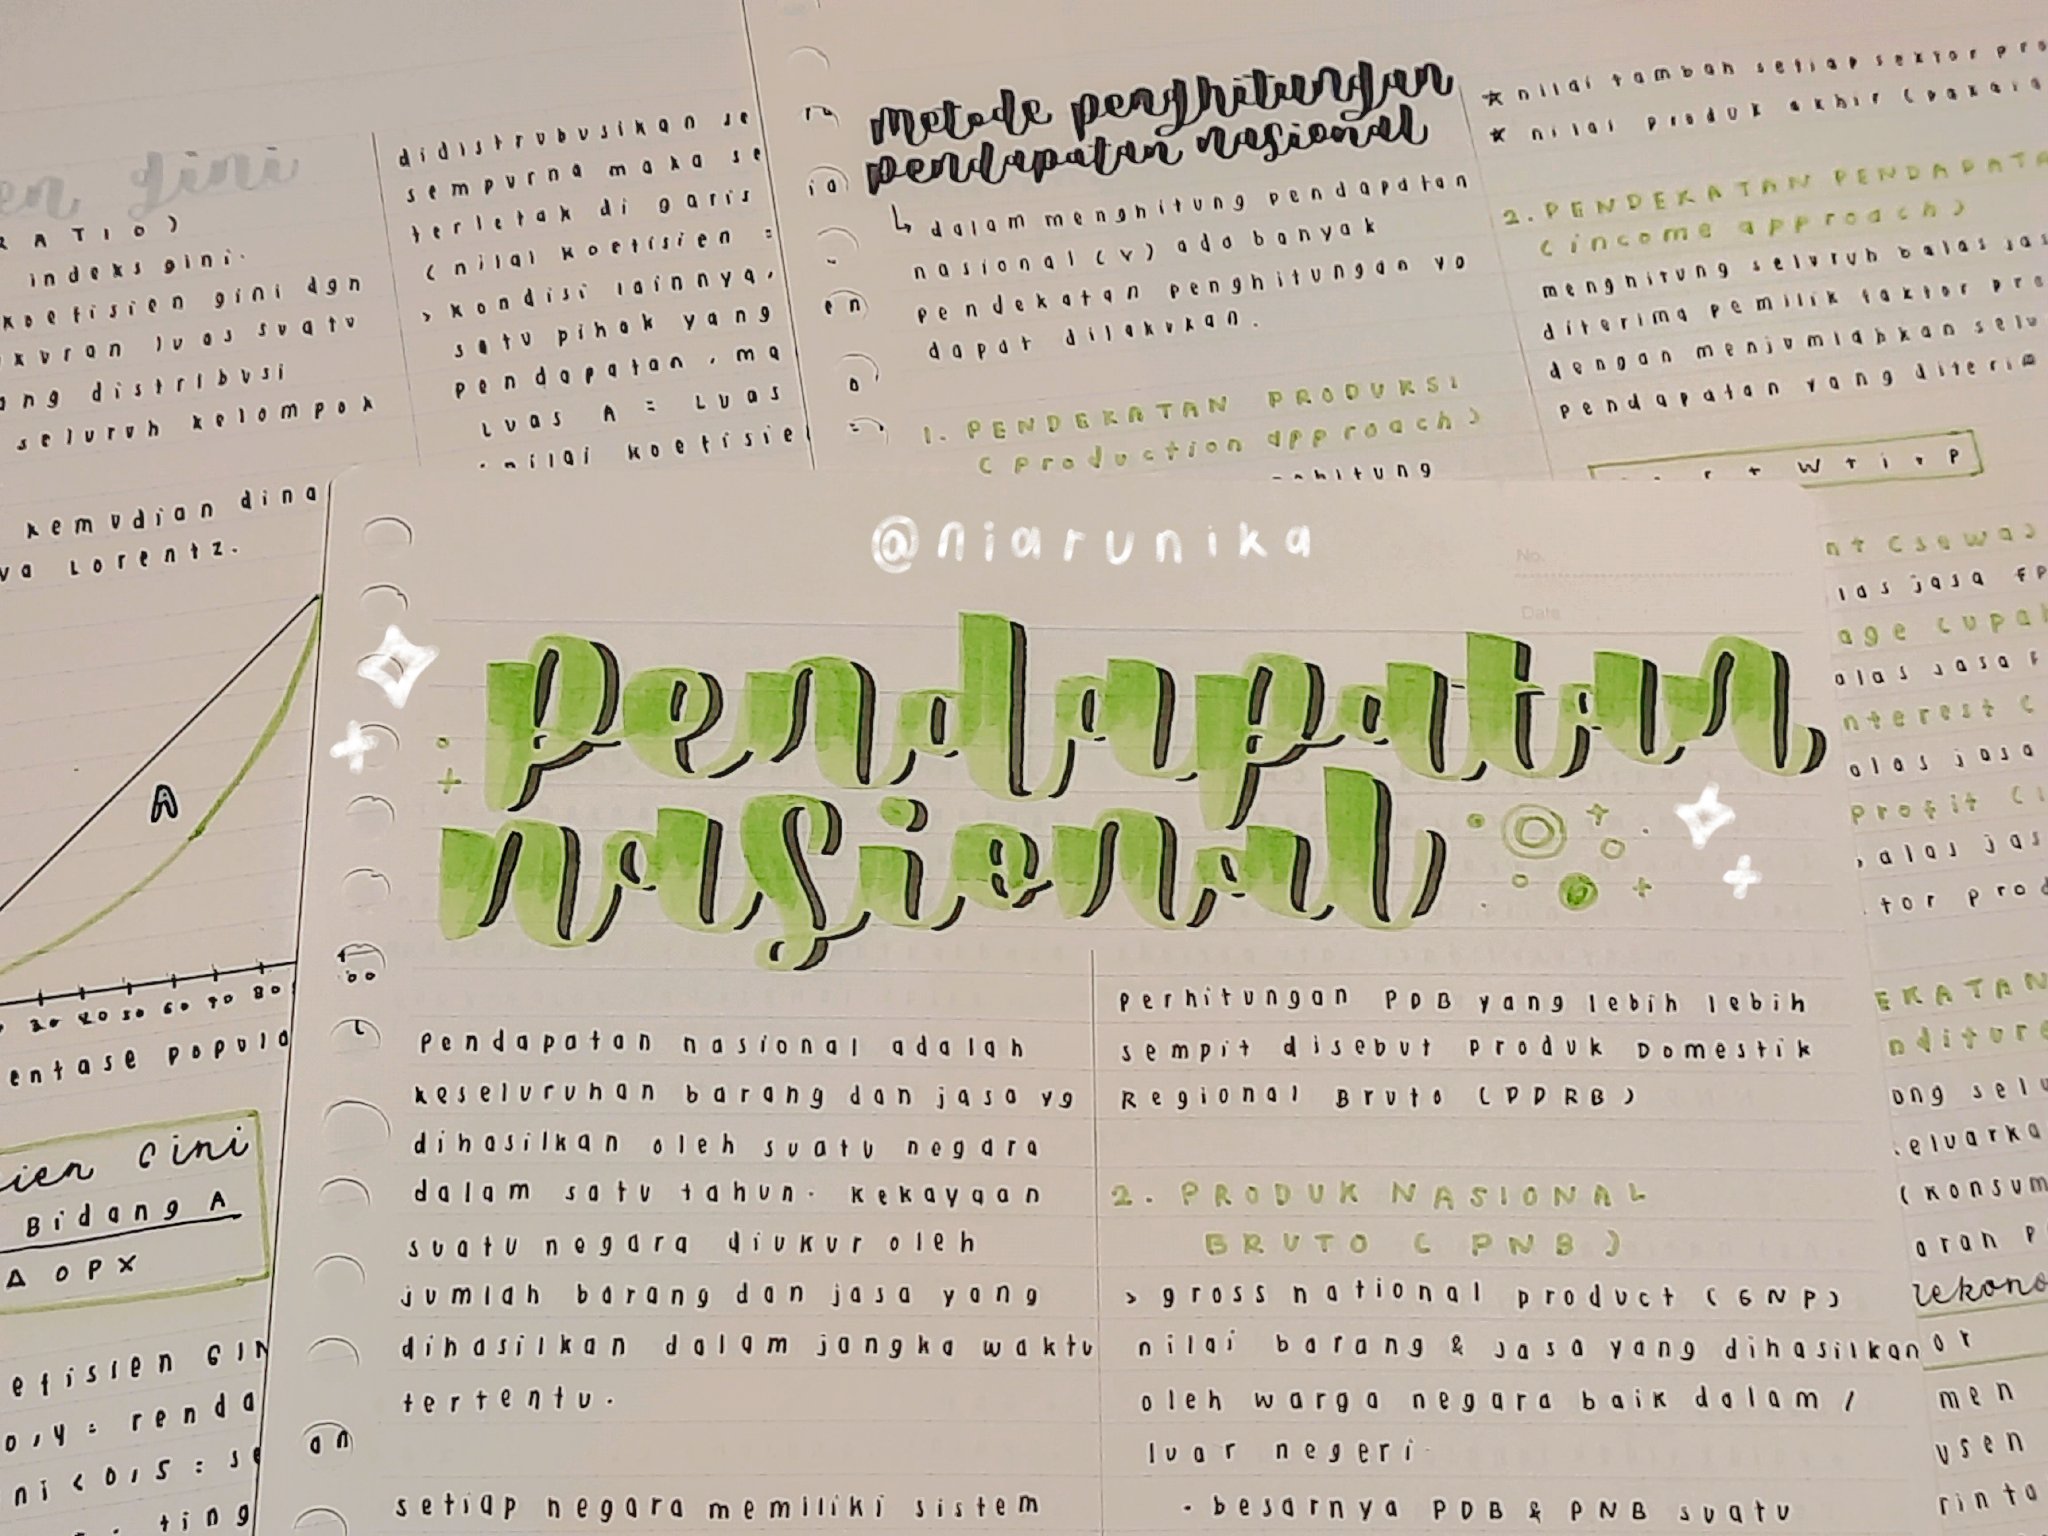 Gini
RATIO)
indeks gini.
koefisien gini dgn
luas suatu
distribusi
seluruh kelompok
kemudian dina
Lorentz.
A
populo
Gini
Bidang A
Δ OPX
GIN
renda
ting
didistrubusikan se
sempurna maka se
terletak di garis
(nilai koefisien =
> kondisi lainnya,
satu pihak yang
pendapatan, ma
LUAS A = LUAS
nilai koefisie
Metode penghitungan
pendapatan nasional
↳ dalam menghitung pendapatan
nasional (Y) ada banyak
pendekatan penghitungan yg
dapat dilakukan.
1. PENDEKATAN PRODUKSI
(production approach)
☆ nilai tambah setiap sektor pro
☆ nilai produk akhir (pakaia
2. PENDEKATAN PENDAPATA
(income approach)
menghitung seluruh balas jas
diterima pemilik faktor pro
dengan menjumlahkan selu
pendapatan yang diterim
r + W + i + P
(sewa)
las jasa FP
age (upah
alas jasa F
nterest (
alas jasa
Profit (
balas jas
tor prod
EKATAN
nditure
ong selu
eluarka
(konsum
aran P
rekono
or
men
usen
rinta
@niarunika
No.
Date
Pendapatan
nasional
Pendapatan nasional adalah
keseluruhan barang dan jasa yg
dihasilkan oleh suatu negara
dalam satu tahun. Kekayaan
suatu negara diukur oleh
jumlah barang dan jasa yang
dihasilkan dalam jangka waktu
tertentu.
setiap negara memiliki sistem
perhitungan PDB yang lebih lebih
sempit disebut Produk Domestik
Regional Bruto (PDRB)
2. PRODUK NASIONAL
BRUTO (PNB)
> gross national product (GNP)
nilai barang & jasa yang dihasilkan
oleh warga negara baik dalam /
luar negeri
• besarnya PDB & PNB suatu